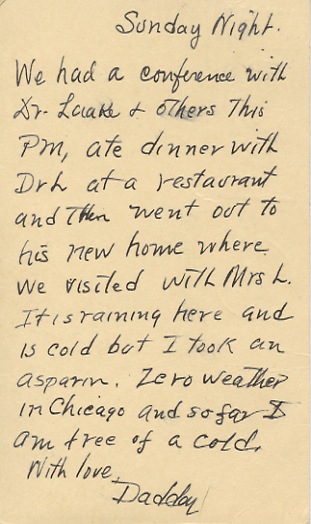 Sunday Night.
We had a conference with
Dr. Laake + others This
PM, ate dinner with
Dr L at a restaurant
and then went out to
his new home where
we visited with Mrs L.
It is raining here and
is cold but I took an
asparin. Zero weather
in Chicago and so far I
am free of a cold.
With love,
Daddy